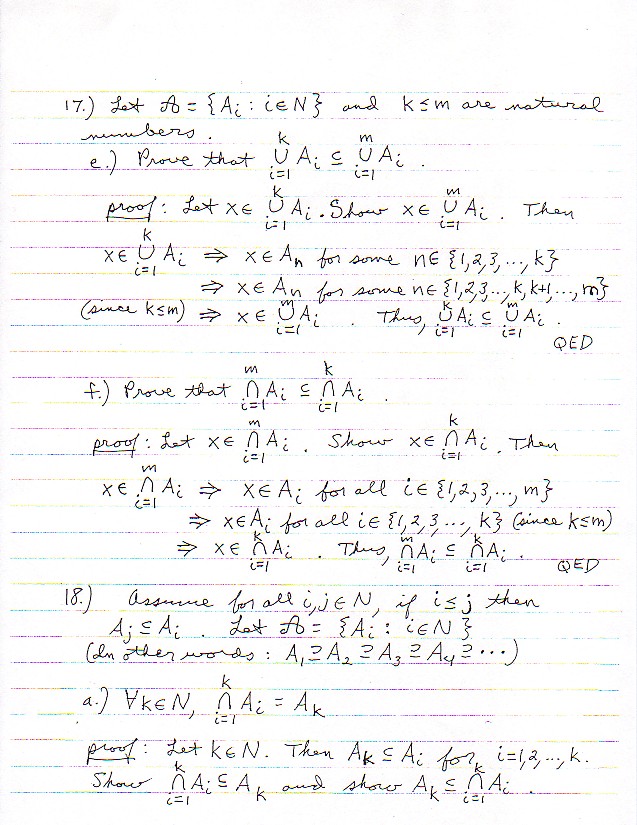 17.) Let 𝒜 = {Aᵢ : i∈N} and k≤m are natural
numbers.
e.) Prove that ⋃ᵢ₌₁ᵏ Aᵢ ⊆ ⋃ᵢ₌₁ᵐ Aᵢ .
proof: Let x∈ ⋃ᵢ₌₁ᵏ Aᵢ . Show x∈ ⋃ᵢ₌₁ᵐ Aᵢ . Then
x∈ ⋃ᵢ₌₁ᵏ Aᵢ ⇒ x∈Aₙ for some n∈{1,2,3,...,k}
⇒ x∈Aₙ for some n∈{1,2,3...,k,k+1,...,m}
(since k≤m) ⇒ x∈ ⋃ᵢ₌₁ᵐ Aᵢ . Thus, ⋃ᵢ₌₁ᵏ Aᵢ ⊆ ⋃ᵢ₌₁ᵐ Aᵢ .
QED
f.) Prove that ⋂ᵢ₌₁ᵐ Aᵢ ⊆ ⋂ᵢ₌₁ᵏ Aᵢ .
proof: Let x∈ ⋂ᵢ₌₁ᵐ Aᵢ . Show x∈ ⋂ᵢ₌₁ᵏ Aᵢ . Then
x∈ ⋂ᵢ₌₁ᵐ Aᵢ ⇒ x∈Aᵢ for all i∈{1,2,3,...,m}
⇒ x∈Aᵢ for all i∈{1,2,3...,k} (since k≤m)
⇒ x∈ ⋂ᵢ₌₁ᵏ Aᵢ . Thus, ⋂ᵢ₌₁ᵐ Aᵢ ⊆ ⋂ᵢ₌₁ᵏ Aᵢ . QED
18.) Assume for all i,j∈N, if i≤j then
Aⱼ⊆Aᵢ . Let 𝒜 = {Aᵢ : i∈N}
(In other words : A₁⊇A₂⊇A₃⊇A₄⊇···)
a.) ∀k∈N, ⋂ᵢ₌₁ᵏ Aᵢ = Aₖ
proof: Let k∈N. Then Aₖ⊆Aᵢ for i=1,2,...,k.
Show ⋂ᵢ₌₁ᵏ Aᵢ⊆Aₖ and show Aₖ⊆ ⋂ᵢ₌₁ᵏ Aᵢ .